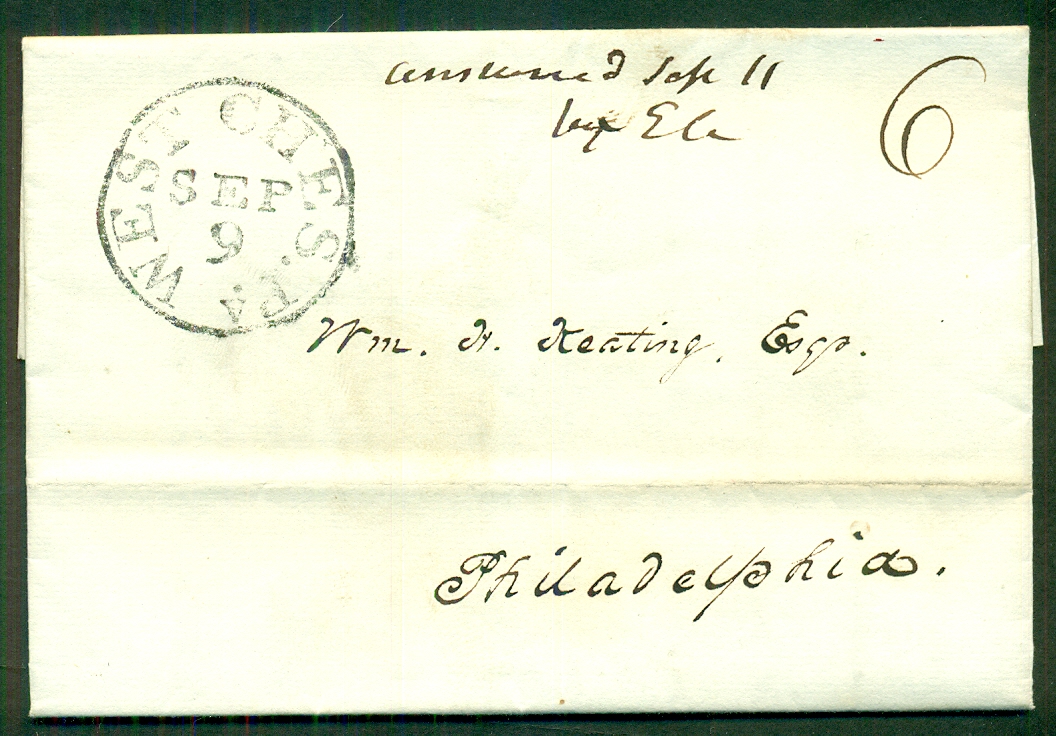 answered Sep 11
by
6
WEST CHES. PA
SEP
9
Wm. H. Keating, Esqr.
Philadelphia.